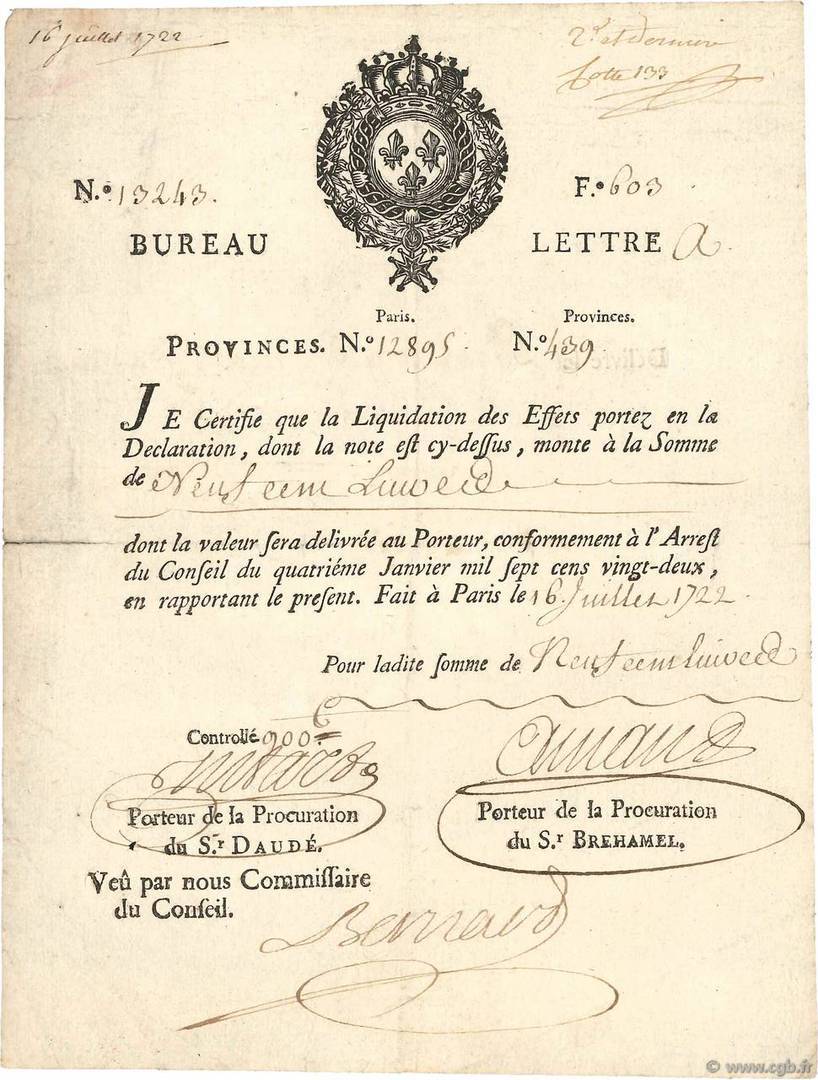 16 juillet 1722
2.e et dernier
Cotte 133
N.º 13243.
F.º 603
BUREAU
LETTRE A.
Paris.
Provinces.
PROVINCES. N.º 12895
N.º 439
JE Certifie que la Liquidation des Effets portez en la
Declaration, dont la note eſt cy-deſſus, monte à la Somme
de Neuf cem Livres
dont la valeur ſera delivrée au Porteur, conformement à l'Arreſt
du Conſeil du quatriéme Janvier mil ſept cens vingt-deux,
en rapportant le preſent. Fait à Paris le 16 Juillet 1722.
Pour ladite ſomme de Neuf cem livres
Controllé 900
Porteur de la Procuration
du S.r DAUDÉ.
Porteur de la Procuration
du S.r BREHAMEL.
Veû par nous Commiſſaire
du Conſeil.
Bernard
© www.cgb.fr